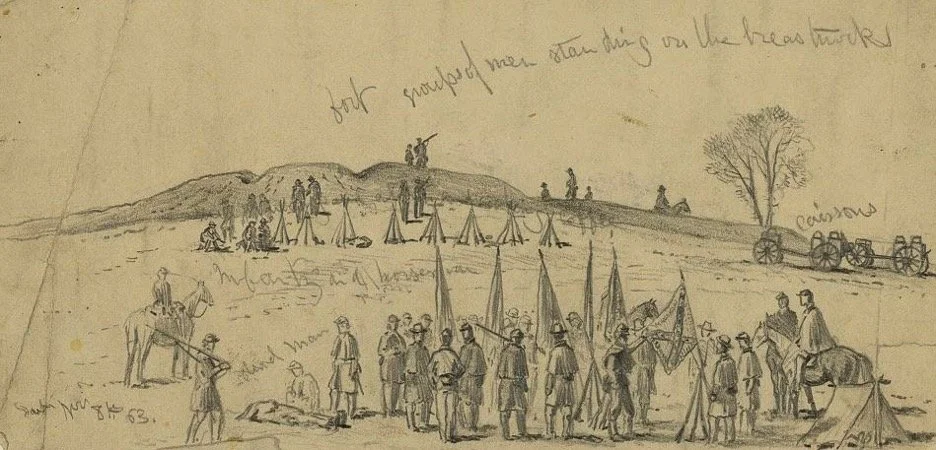 fort groups of men standing on the breastworks
caissons
Infantry & horseman
dead man
Nov 8th 63.